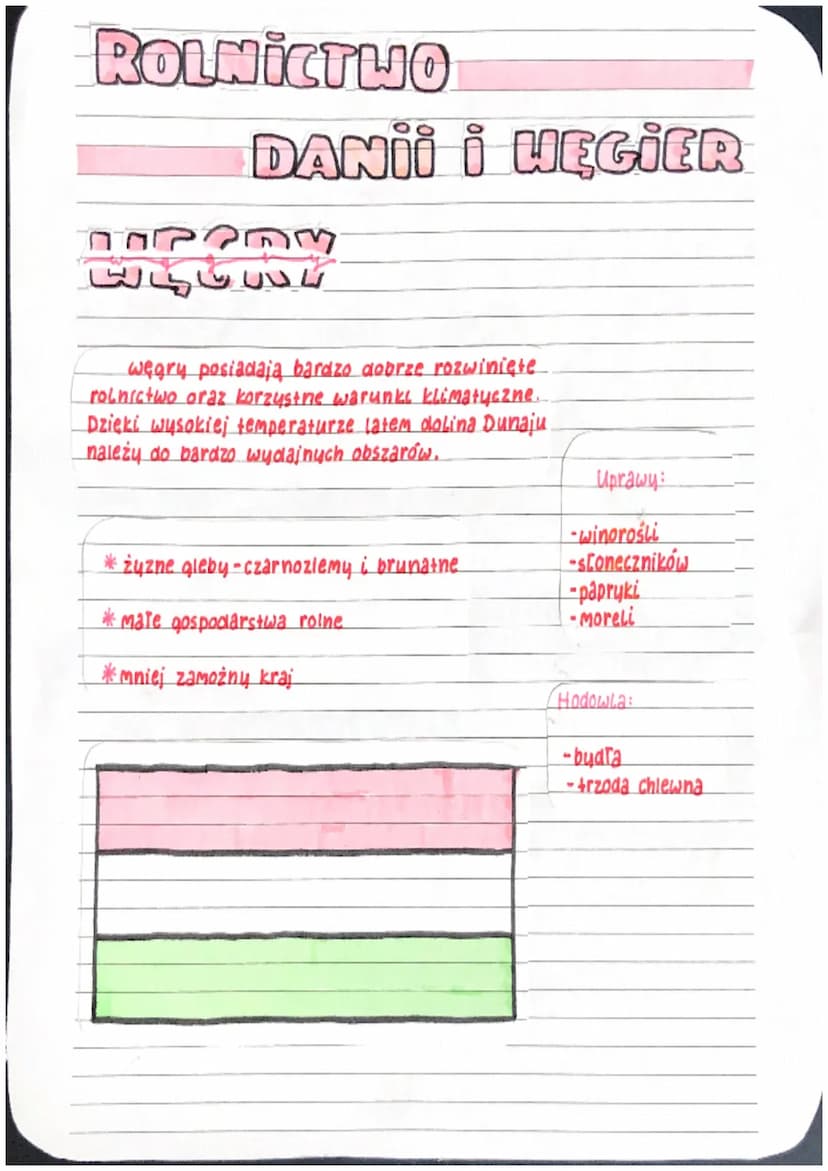 ROLNiCTWO
DANii i WĘGiER
WĘGRY
węgry posiadają bardzo dobrze rozwinięte
rolnictwo oraz korzystne warunki klimatyczne.
Dzięki wysokiej temperaturze latem dolina Dunaju
należy do bardzo wydajnych obszarów.
* żyzne gleby - czarnoziemy i brunatne
* małe gospodarstwa rolne
* mniej zamożny kraj
Uprawy:
- winorośli
- słoneczników
- papryki
- moreli
Hodowla:
- bydła
- trzoda chlewna